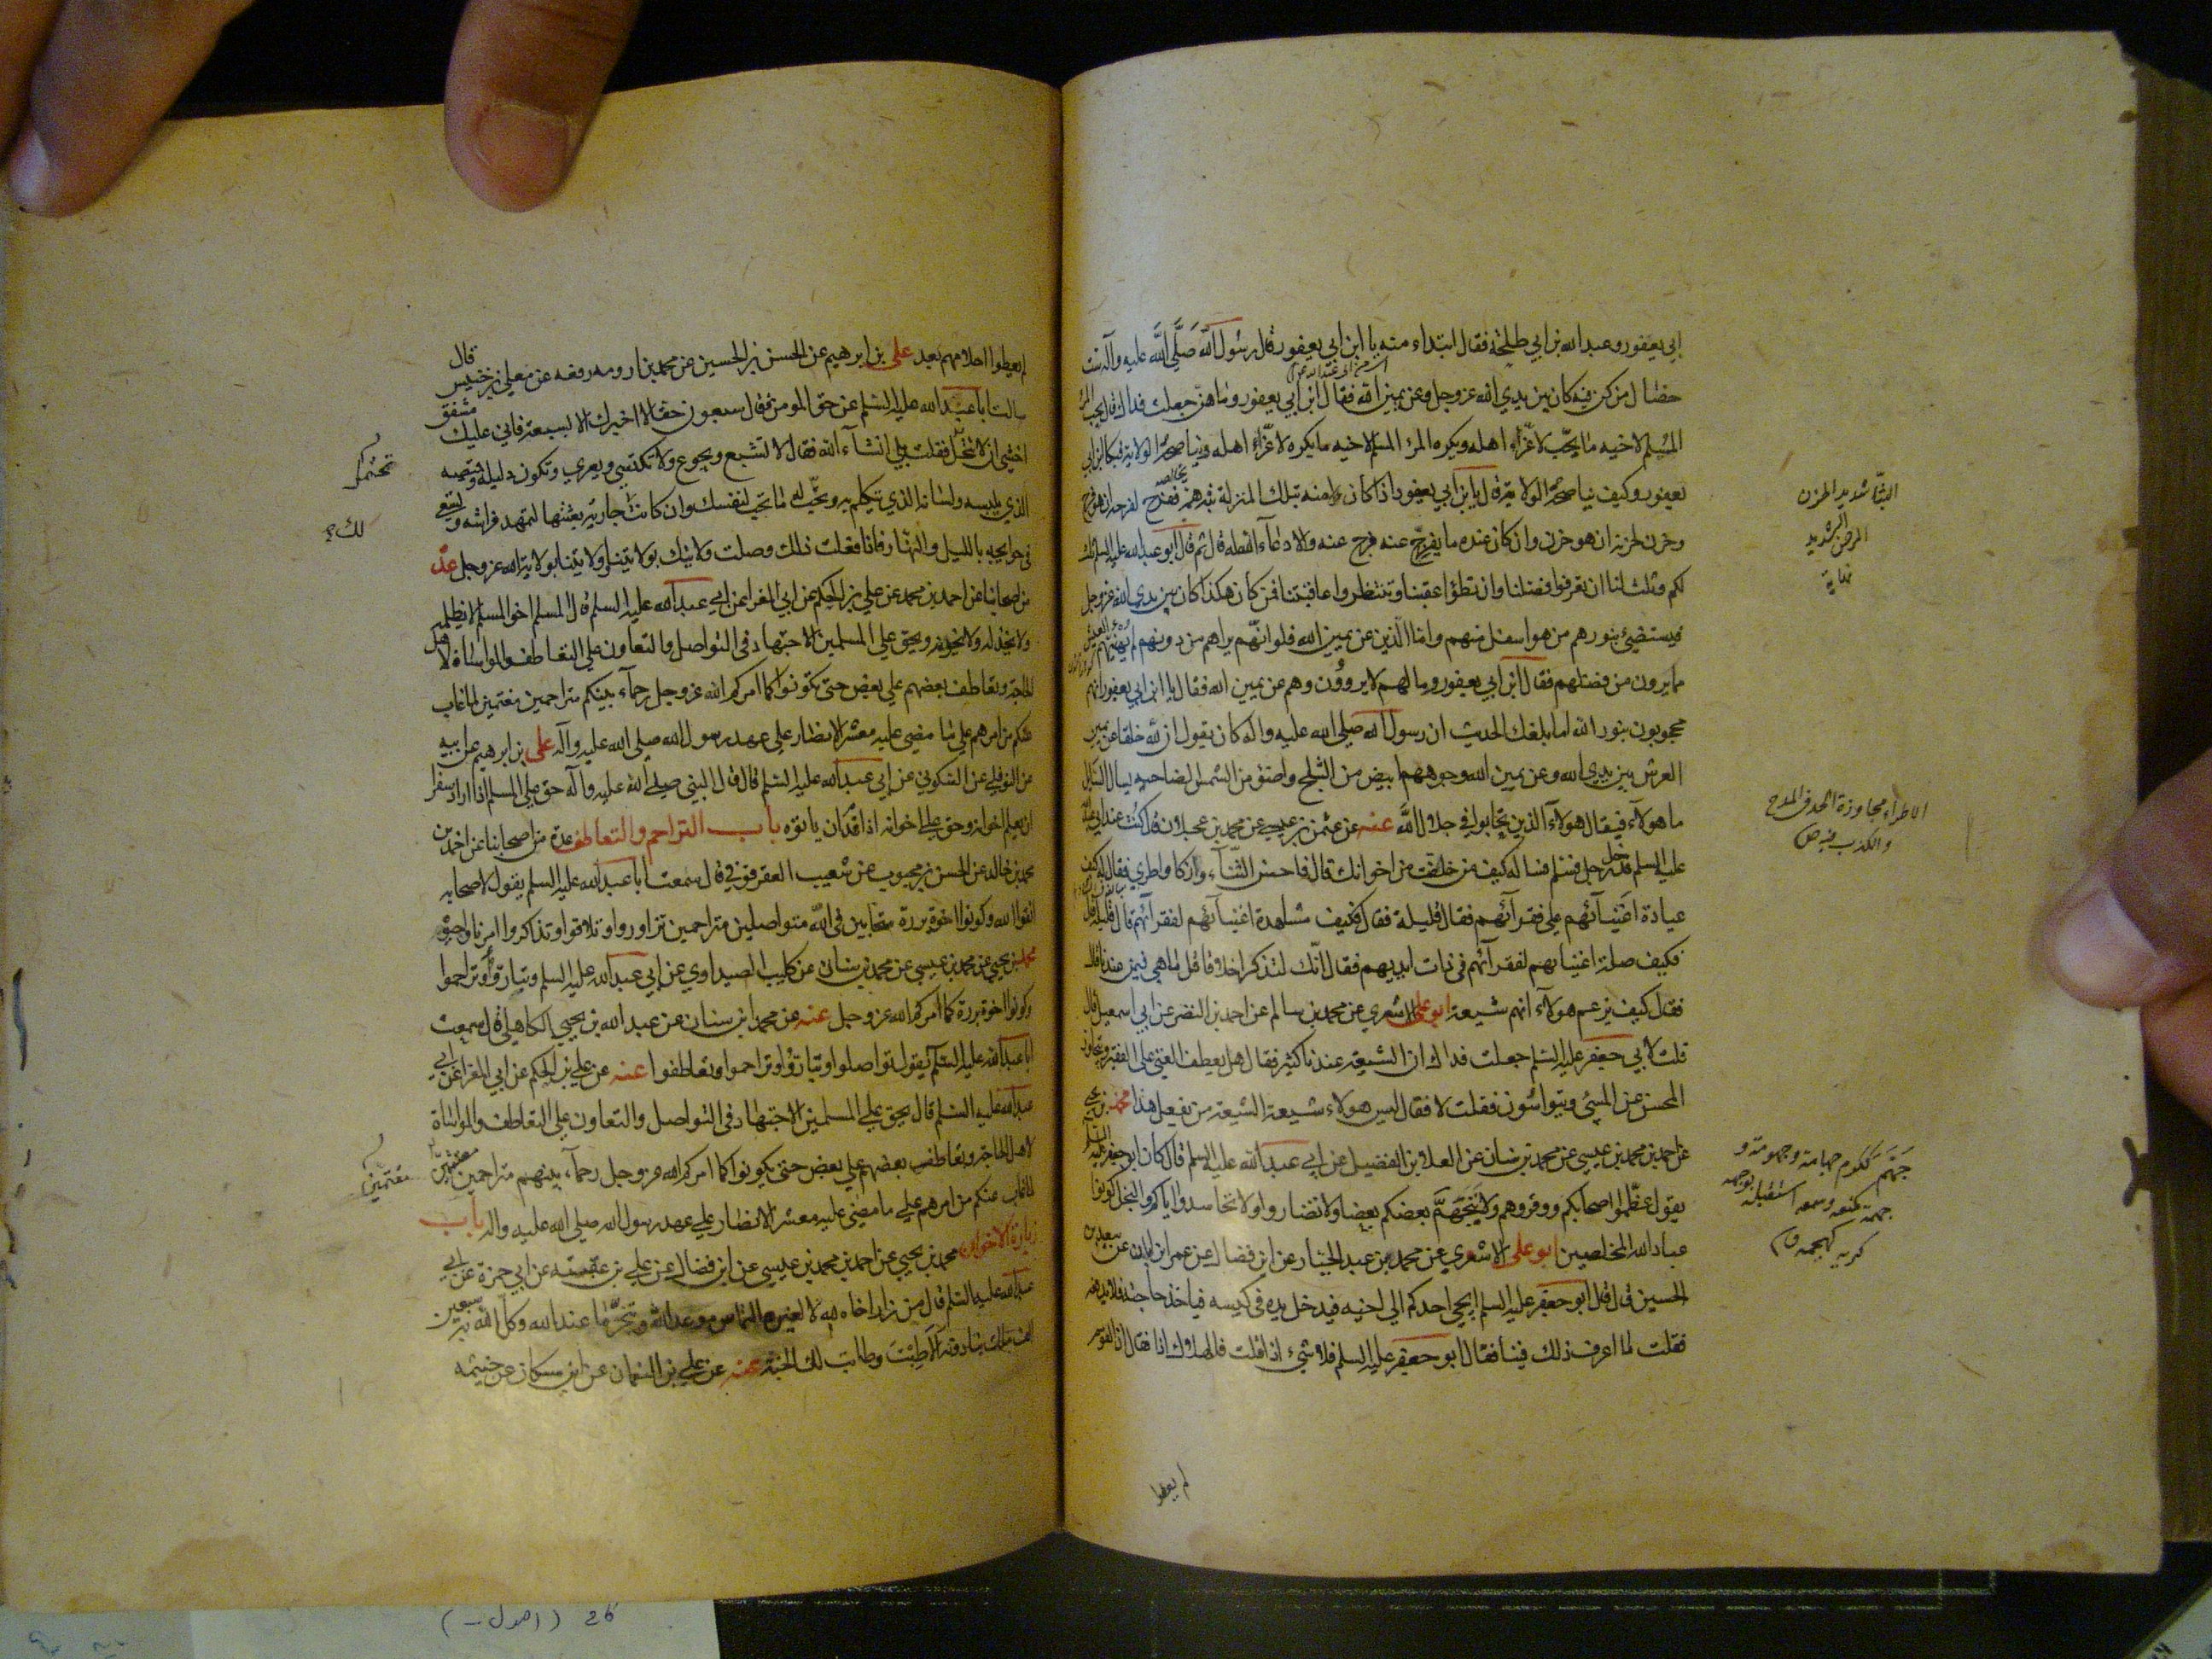 ابي يعفور وعبد الله بن ابي طلحة فقال ابتداء منه يا ابن ابي يعفور قال رسول الله صلى الله عليه وآله ست
خصال من كن فيه كان بين يدي الله عز وجل وعن يمين الله فقال ابن ابي يعفور وما هن جعلت فداك قال يحب المرء
المسلم لاخيه ما يحب لاعز اهله ويكره المرء المسلم لاخيه ما يكره لاعز اهله ويناصحه الولاية فبكا ابن ابي
يعفور وكيف يناصحه الولاية قال يا ابن ابي يعفور اذا كان منه بتلك المنزلة بثه همه ففرح لفرحه ان هو فرح
وحزن لحزنه ان هو حزن وان كان عنده ما يفرج عنه فرج عنه والا دعا الله له قال ثم قال ابو عبد الله عليه السلم ثلث
لكم وثلث لنا ان تعرفوا فضلنا وان تطؤا عقبنا وتنتظروا عاقبتنا فمن كان هكذا كان بين يدي الله عز وجل
فيستضيء بنورهم من هو اسفل منهم واما الذين عن يمين الله فلو انهم يراهم من دونهم لم يهنهم العيش
مما يرون من فضلهم فقال ابن ابي يعفور وما لهم لا يرون وهم عن يمين الله فقال يا ابن ابي يعفور انهم
محجوبون بنور الله اما بلغك الحديث ان رسول الله صلى الله عليه واله كان يقول ان لله خلقا عن يمين
العرش بين يدي الله وعن يمين الله وجوههم ابيض من الثلج واضوء من الشمس الضاحية يسال السائل
ما هولاء فيقال هولاء الذين تحابوا في جلال الله عنه عن عثمن بن عيسى عن محمد بن عجلان قال كنت عند ابي عبد الله
عليه السلم فدخل رجل فسلم فساله كيف من خلفت من اخوانك قال فاحسن الثناء وزكا واطرى فقال له كيف
عيادة اغنيائهم على فقرائهم فقال قليلة فقال فكيف مشاهدة اغنيائهم لفقرائهم قال قليلة قال
فكيف صلة اغنيائهم لفقرائهم في ذات ايديهم فقال انك لتذكر اخلاقا قل ما هي فيمن عندنا قال
فقال كيف يزعم هولاء انهم شيعة ابو علي الاشعري عن محمد بن سالم عن احمد بن النضر عن ابي اسمعيل قال
قلت لابي جعفر عليه السلم جعلت فداك ان الشيعة عندنا كثير فقال هل يعطف الغني على الفقير ويتجاوز
المحسن عن المسيء ويتواسون فقلت لا فقال ليس هولاء شيعة الشيعة من يفعل هذا محمد بن يحيى
عن احمد بن محمد بن عيسى عن محمد بن سنان عن العلا بن الفضيل عن ابي عبد الله عليه السلم قال كان ابو جعفر عليه السلم
يقول عظموا اصحابكم ووقروهم ولا يتجهم بعضكم بعضا ولا تضاروا ولا تحاسدوا واياكم والبخل كونوا
عباد الله المخلصين ابو علي الاشعري عن محمد بن عبد الجبار عن ابن فضال عن عمر ابن ابان عن سعيد بن
الحسين قال قال ابو جعفر عليه السلم ايجي احدكم الى اخيه فيدخل يده في كيسه فياخذ حاجته فلا يدفعه
فقلت ما اعرف ذلك فينا فقال ابو جعفر عليه السلم فلا شيء اذا قلت فالهلاك اذا فقال ان القوم
البث شديد الحزن
المرض الشديد
نهاية
الاطراء مجاوزة الحد في المدح
والكذب فيه ص
جهمه كمنعه وسمعه استقبله بوجه
كريه كتجهمه ق
لم يعطوا
لم يعطوا احلامهم بعد علي بن ابرهيم عن الحسن بن الحسين عن محمد بن ارومه رفعه عن معلى بن خنيس قال
سالت ابا عبد الله عليه السلم عن حق المومن فقال سبعون حقا لا اخبرك الا بسبعة فاني عليك مشفق
اخشى ان لا تحتمل فقلت بلى انشاء الله فقال لا تشبع ويجوع ولا تكتسي ويعرى وتكون دليله وقميصه
الذي يلبسه ولسانه الذي يتكلم به وتحب له ما تحب لنفسك وان كانت جارية بعثتها لتمهد فراشه وتسعى
في حوايجه بالليل والنهار فاذا فعلت ذلك وصلت ولايتك بولايتنا وولايتنا بولاية الله عز وجل عدة
من اصحابنا عن احمد بن محمد عن علي بن الحكم عن ابي المغرا عن ابي عبد الله عليه السلم قال المسلم اخو المسلم لا يظلمه
ولا يخذله ولا يخونه ويحق على المسلمين الاجتهاد في التواصل والتعاون على التعاطف والمواساة لاهل
الحاجة وتعاطف بعضهم على بعض حتى تكونوا كما امركم الله عز وجل رحماء بينكم متراحمين مغتمين لما غاب
عنكم من امرهم على ما مضى عليه معشر الانصار على عهد رسول الله صلى الله عليه وآله علي بن ابرهيم عن ابيه
عن النوفلي عن السكوني عن ابي عبد الله عليه السلم قال قال النبي صلى الله عليه وآله حق على المسلم اذا اراد سفرا
ان يعلم اخوانه وحق على اخوانه اذا قدم ان ياتوه باب التراحم والتعاطف عدة من اصحابنا عن احمد بن
محمد بن خالد عن الحسن بن محبوب عن شعيب العقرقوفي قال سمعت ابا عبد الله عليه السلم يقول لاصحابه
اتقوا الله وكونوا اخوة بررة متحابين في الله متواصلين متراحمين تزاوروا وتلاقوا وتذاكروا امرنا واحيوه
محمد بن يحيى عن محمد بن عيسى عن محمد بن سنان عن كليب الصيداوي عن ابي عبد الله عليه السلم وتباروا وتراحموا
وكونوا اخوة بررة كما امركم الله عز وجل عنه عن محمد ابن سنان عن عبد الله بن يحيى الكاهلي قال سمعت
ابا عبد الله عليه السلم يقول تواصلوا وتباروا وتراحموا وتعاطفوا عنه عن علي بن الحكم عن ابي المغرا عن ابي
عبد الله عليه السلم قال يحق على المسلمين الاجتهاد في التواصل والتعاون على التعاطف والمواساة
لاهل الحاجة وتعاطف بعضهم على بعض حتى يكونوا كما امركم الله عز وجل رحماء بينهم متراحمين مغتمين
لما غاب عنكم من امرهم على ما مضى عليه معشر الانصار على عهد رسول الله صلى الله عليه واله باب
زيارة الاخوان محمد بن يحيى عن احمد بن محمد بن عيسى عن ابن فضال عن علي بن عقبة عن ابي حمزة عن ابي
عبد الله عليه السلم قال من زار اخاه لله لا لغيره التماس موعد الله وتنجز ما عند الله وكل الله به سبعين
الف ملك ينادونه الا طبت وطابت لك الجنة عنه عن علي بن النعمان عن ابن مسكان عن خيثمه
تحتمل
لك
مغتمين